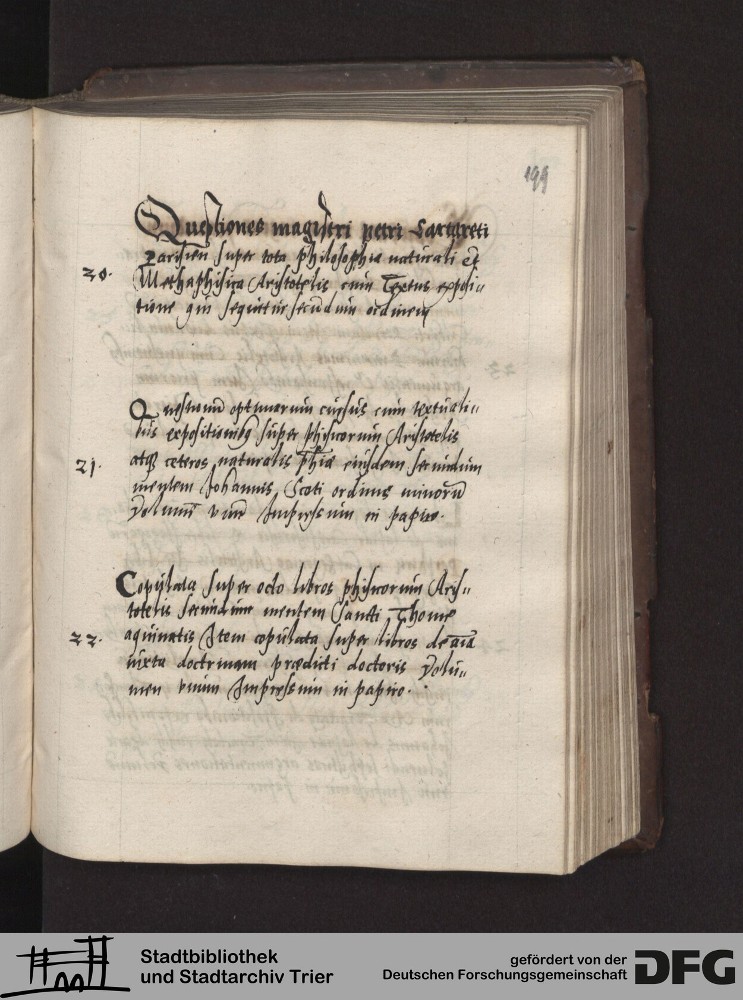 199
Questiones magistri petri Tartareti
Parisien super tota philosophia naturali et
20. Methaphisica Aristotelis cum Textus exposi„
tione qui sequitur secundum ordinem
Questionum optimarum cursus cum textuali„
bus expositionibus super phisicorum Aristotelis
21. atque ceteros naturalis phiae eiusdem secundum
mentem Johannis Scoti ordinis minorum
Volumen unum Impressum in papiro.
Copulata super octo libros phisicorum Aris„
totelis secundum mentem Sancti Thome
22. aquinatis Item copulata super libros de aia
iuxta doctrinam praediti doctoris Volu„
men unum Impressum in papiro.
Stadtbibliothek
und Stadtarchiv Trier
gefördert von der
Deutschen Forschungsgemeinschaft
DFG